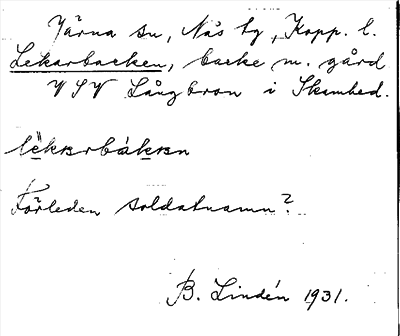 Järna sn, Nås hg, Kopp. l.
Lekarbacken, backe m. gård
VSV Långbron i Skamhed.
lèkɐrbákɐn
Förleden soldatnamn?
B. Lindén 1931.